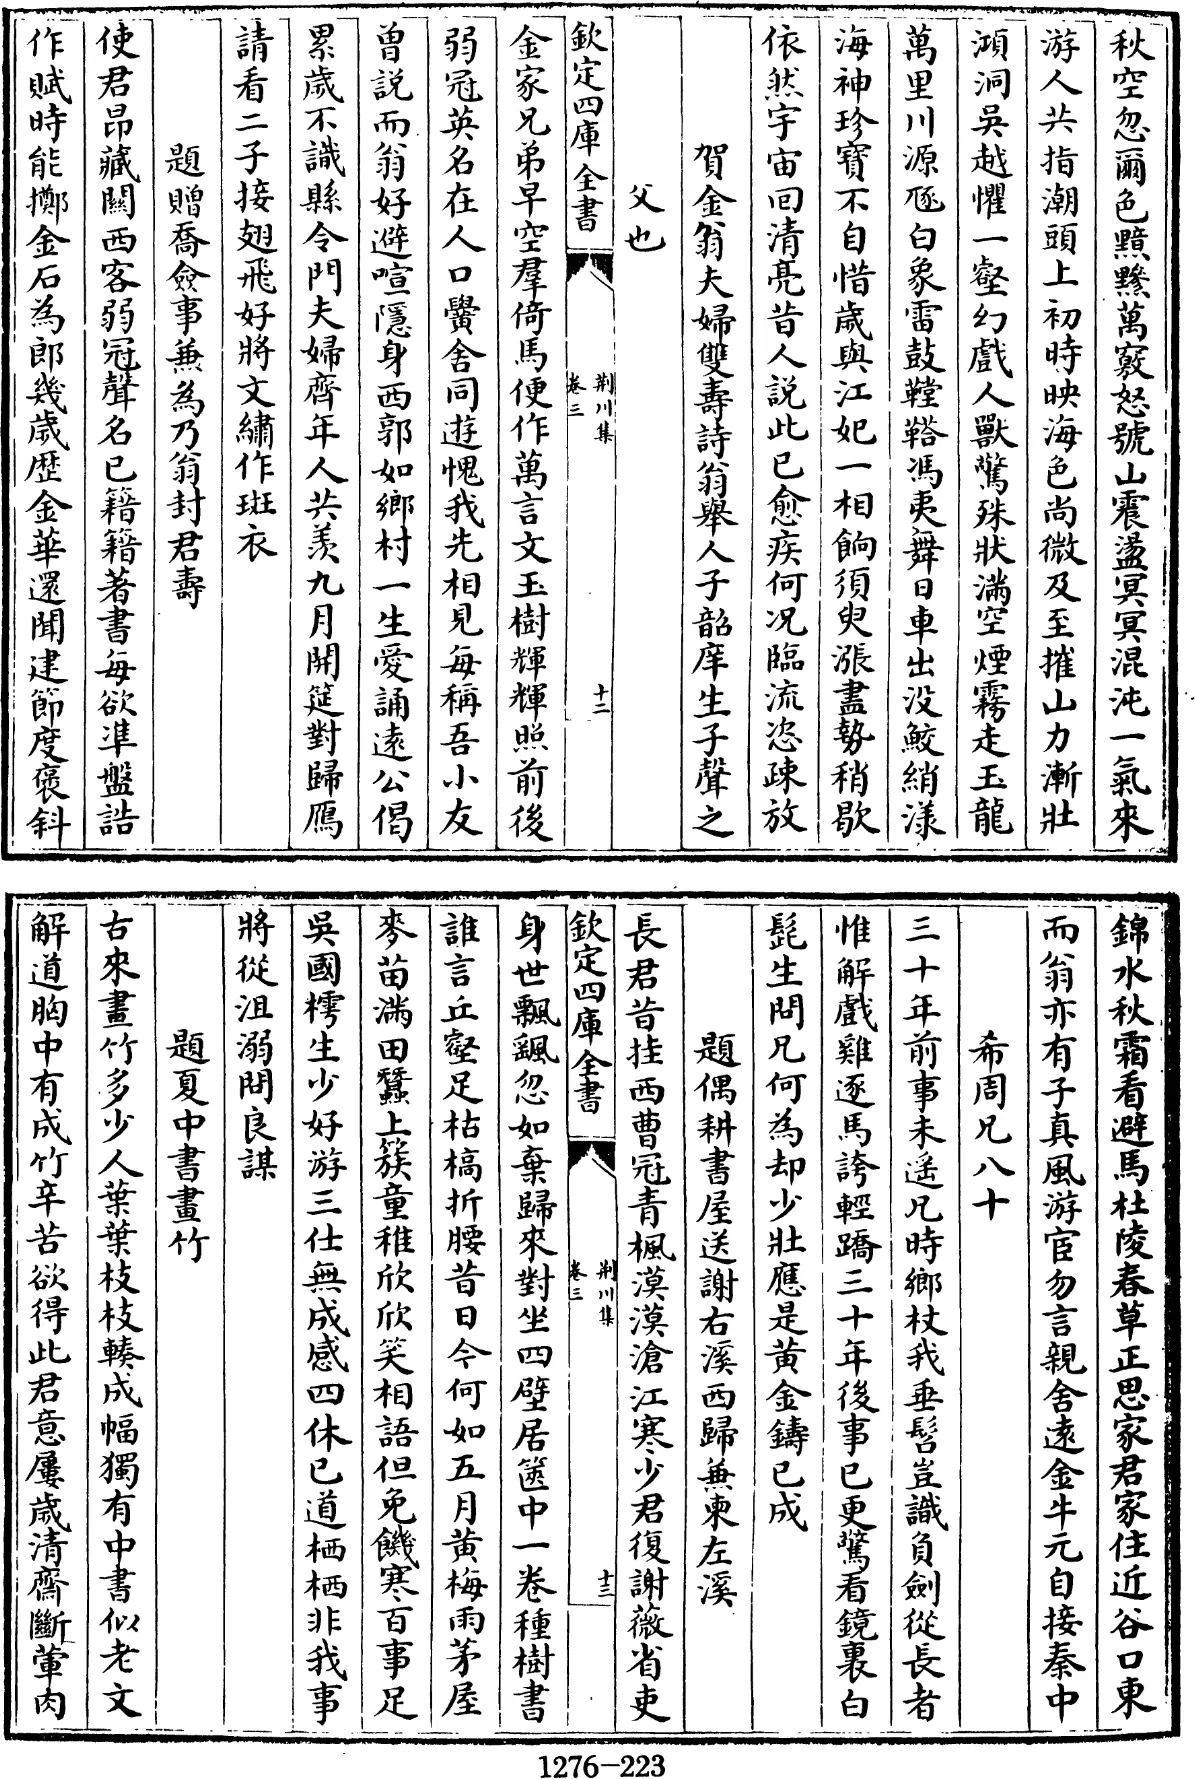 秋空忽爾色黯黲萬竅怒號山震盪冥冥混沌一氣來
游人共指潮頭上初時映海色尚微及至摧山力漸壯
澒洞吳越懼一壑幻戲人獸驚殊狀滿空煙霧走玉龍
萬里川源豗白象雷鼓鞺鞳馮夷舞日車出没鮫綃漾
海神珍寶不自惜歲與江妃一相餉須臾漲盡勢稍歇
依然宇宙回清亮昔人說此已愈疾何况臨流恣疎放
賀金翁夫婦雙壽詩翁舉人子韶庠生子聲之
父也
欽定四庫全書
荆川集
卷三
十二
金家兄弟早空羣倚馬便作萬言文玉樹輝輝照前後
弱冠英名在人口黌舍同遊愧我先相見每稱吾小友
曾説而翁好避喧隱身西郭如鄉村一生愛誦遠公偈
累歲不識縣令門夫婦齊年人共羨九月開筵對歸鴈
請看二子接翅飛好將文繡作斑衣
題贈喬僉事兼為乃翁封君壽
使君昂藏關西客弱冠聲名已籍籍著書每欲準盤誥
作賦時能擲金石為郎幾歲歴金華還聞建節度褒斜
錦水秋霜看避馬杜陵春草正思家君家住近谷口東
而翁亦有子真風游宦勿言親舍遠金牛元自接秦中
希周兄八十
三十年前事未遥兄時鄉杖我垂髫豈識負劍從長者
惟解戲雞逐馬誇輕蹻三十年後事已更驚看鏡裏白
髭生問兄何為却少壯應是黄金鑄已成
題偶耕書屋送謝右溪西歸兼柬左溪
長君昔挂西曹冠青楓漠漠滄江寒少君復謝薇省吏
欽定四庫全書
荆川集
卷三
十三
身世飄飄忽如棄歸來對坐四壁居篋中一卷種樹書
誰言丘壑足枯槁折腰昔日今何如五月黄梅雨茅屋
麥苗滿田蠶上簇童稚欣欣笑相語但免饑寒百事足
吳國樗生少好游三仕無成感四休已道栖栖非我事
將從沮溺問良謀
題夏中書畫竹
古來畫竹多少人葉葉枝枝輳成幅獨有中書似老文
解道胸中有成竹辛苦欲得此君意屢歲清齋斷葷肉
1276-223